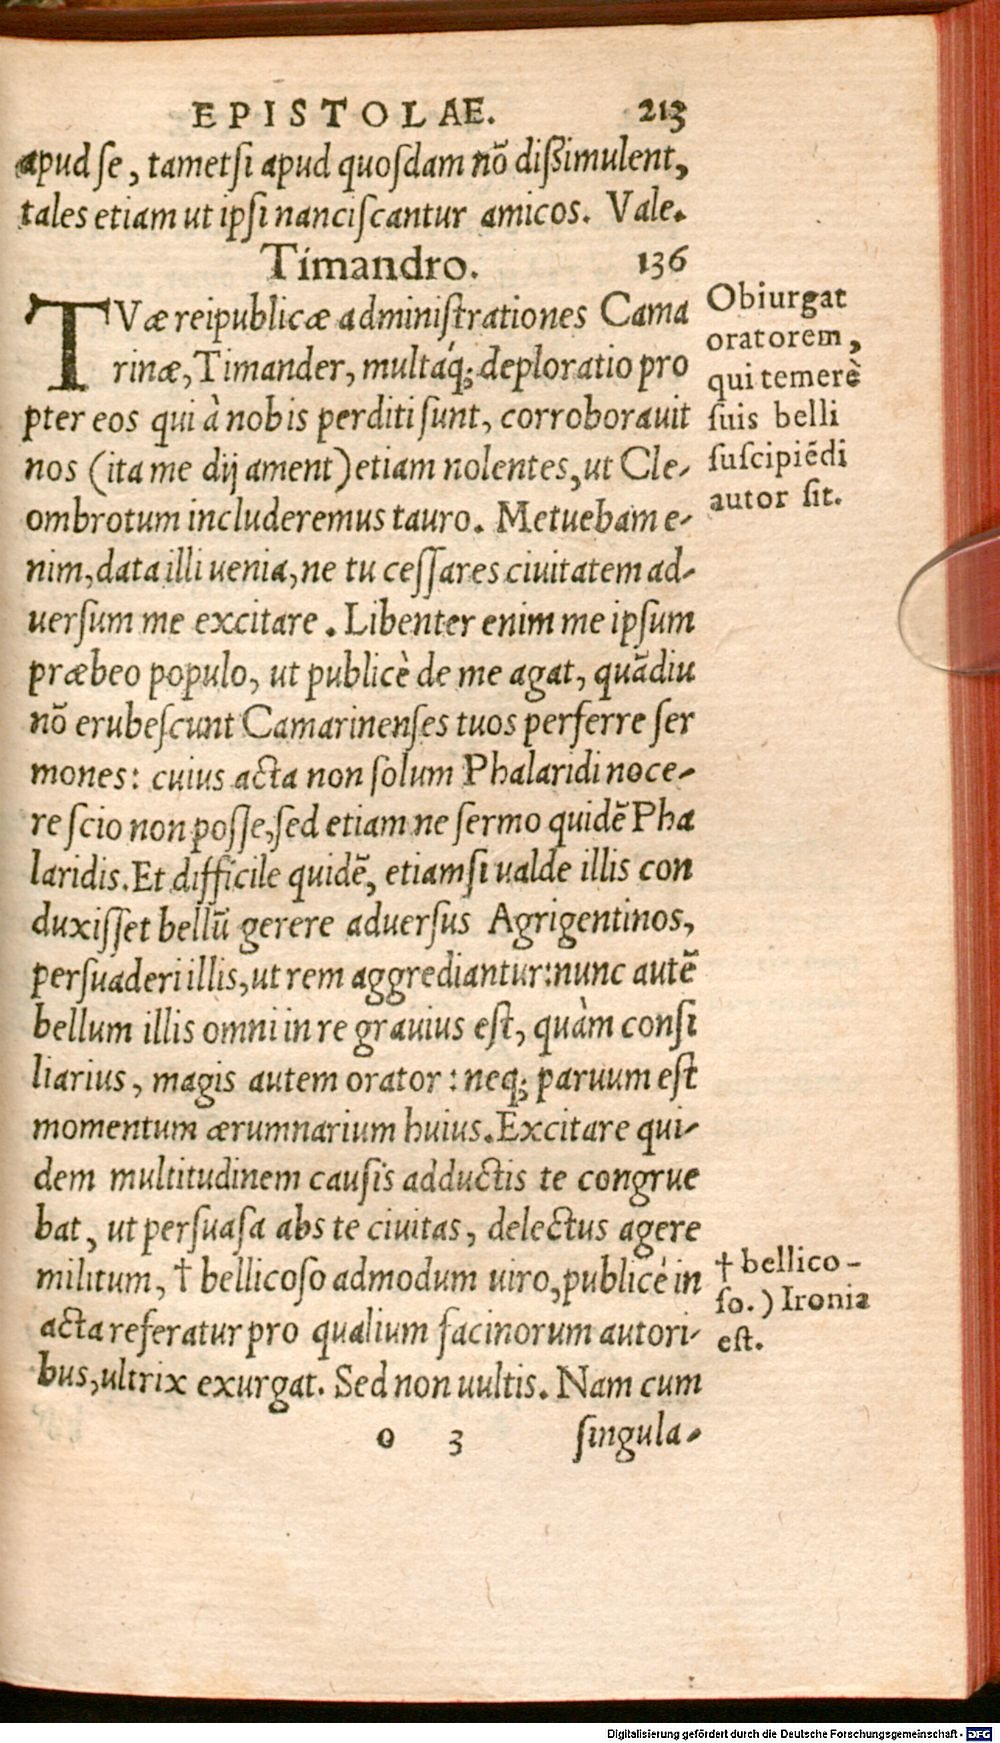 EPISTOLAE. 213
apud se, tametsi apud quosdam nõ dißimulent,
tales etiam ut ipsi nanciscantur amicos. Vale.
Timandro. 136
TVæ reipublicæ administrationes Cama
rinæ, Timander, multáq; deploratio pro
pter eos qui à nobis perditi sunt, corroborauit
nos (ita me dij ament) etiam nolentes, ut Cle-
ombrotum includeremus tauro. Metuebam e-
nim, data illi uenia, ne tu cessares ciuitatem ad-
uersum me excitare. Libenter enim me ipsum
præbeo populo, ut publicè de me agat, quãdiu
nõ erubescunt Camarinenses tuos perferre ser
mones: cuius acta non solum Phalaridi noce-
re scio non posse, sed etiam ne sermo quidẽ Pha
laridis. Et difficile quidẽ, etiamsi ualde illis con
duxisset bellũ gerere aduersus Agrigentinos,
persuaderi illis, ut rem aggrediantur: nunc autẽ
bellum illis omni in re grauius est, quàm consi
liarius, magis autem orator: neq; paruum est
momentum ærumnarium huius. Excitare qui-
dem multitudinem causis adductis te congrue
bat, ut persuasa abs te ciuitas, delectus agere
militum, † bellicoso admodum uiro, publicè in
acta referatur pro qualium facinorum autori-
bus, ultrix exurgat. Sed non uultis. Nam cum
o 3 singula-
Obiurgat
oratorem,
qui temerè
suis belli
suscipiẽdi
autor sit.
† bellico-
so.) Ironia
est.
Digitalisierung gefördert durch die Deutsche Forschungsgemeinschaft - DFG